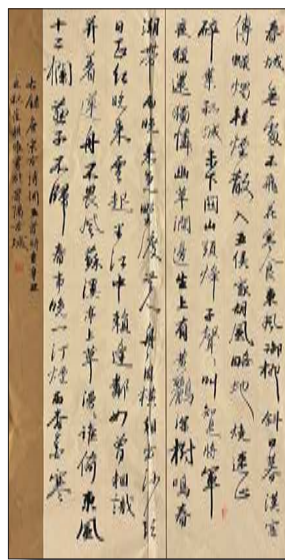 春城無處不飛花寒食東風御柳斜日暮漢宮
傳蠟燭輕煙散入五侯家胡風略地燒連山
碎葉孤城未下關山頭烽子聲聲叫知是將軍
夜獵還獨憐幽草澗邊生上有黃鸝深樹鳴春
潮帶雨晚來急野渡無人舟自橫朝出沙頭
日正紅晚來雲起半江中賴逢鄰女曾相識
并着蓮舟不畏風蘇溪亭上草漫漫誰倚東風
十二闌燕子不歸春事晚一汀煙雨杏花寒